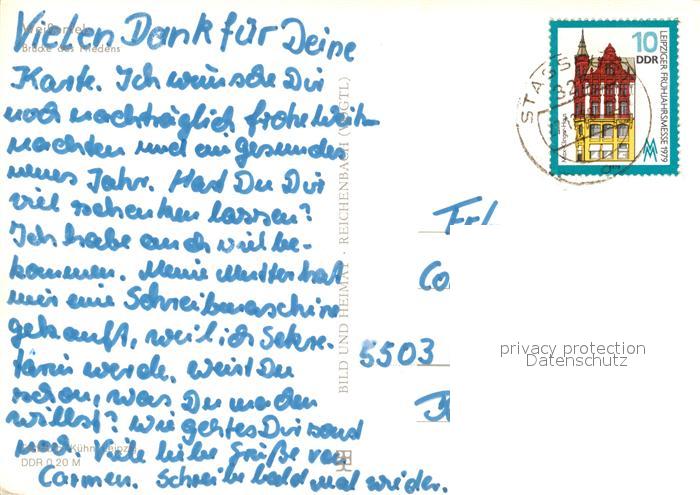 Vielen Dank für Deine
Brücke des Friedens
Karte. Ich wünsche Dir
noch nachträglich frohe Weih-
nachten und ein gesundes
neues Jahr. Hast Du Dir
viel schenken lassen?
Ich habe auch viel be-
kommen. Meine Mutter hat
mir eine Schreibmaschine
gekauft, weil ich Sekre-
tärin werde, weist Du
schon, was Du machen
willst? Wie geht es Dir sonst
noch. Viele liebe Grüße von
Carmen. Schreibe bald mal wieder.
Kühn, Leipzig
DDR 0,20 M
BILD UND HEIMAT · REICHENBACH (VOGTL)
10
DDR
LEIPZIGER FRÜHJAHRSMESSE 1979
MM
STASS
Frl
Co
5503
privacy protection
Datenschutz